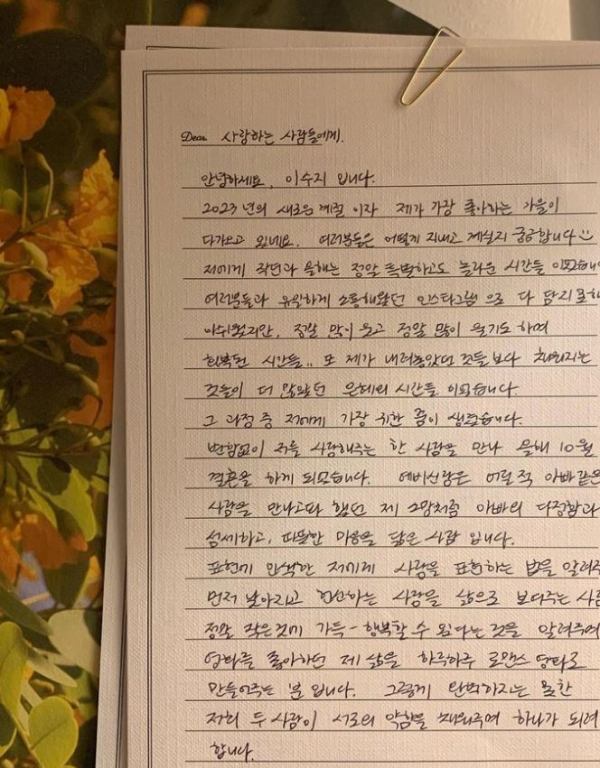 Dear 사랑하는 사람들에게.
안녕하세요, 이수지 입니다.
2023년의 새로운 계절 이자 제가 가장 좋아하는 가을이
다가오고 있네요. 여러분들은 어떻게 지내고 계실지 궁금합니다
저에게 작년과 올해는 정말 특별하고도 놀라운 시간들
여러분들과 유일하게 소통해왔던 인스타그램 으로 다
아쉬웠지만, 정말 많이 웃고 정말 많이 울기도 하며
회복된 시간들.. 또 제가 내려놓았던 것들보다 채워지는
것들이 더 많았던 은혜의 시간들 이었습니다.
그 과정 중 저에게 가장 귀한 쉼이 생겼습니다.
변함없이 저를 사랑해주는 한 사람을 만나 올해 10월
결혼을 하게 되었습니다. 예비신랑은 어릴 적 아빠같은
사람을 만나고파 했던 제 소망처럼 아빠의 다정함과
섬세하고, 따뜻한 마음을 닮은 사람 입니다.
표현에 인색한 저에게 사랑을 표현하는 법을
먼저 낮아지고 헌신하는 사랑을 삶으로 보여주는
정말 작은것에 가득- 행복할 수 있다는 것을 알려주며
영화를 좋아하던 제 삶을 하루하루 로맨스 영화로
만들어주는 분 입니다. 그렇게 완벽하지는 못한
저희 두 사람이 서로의 약함을 채워주며 하나가 되려
합니다.